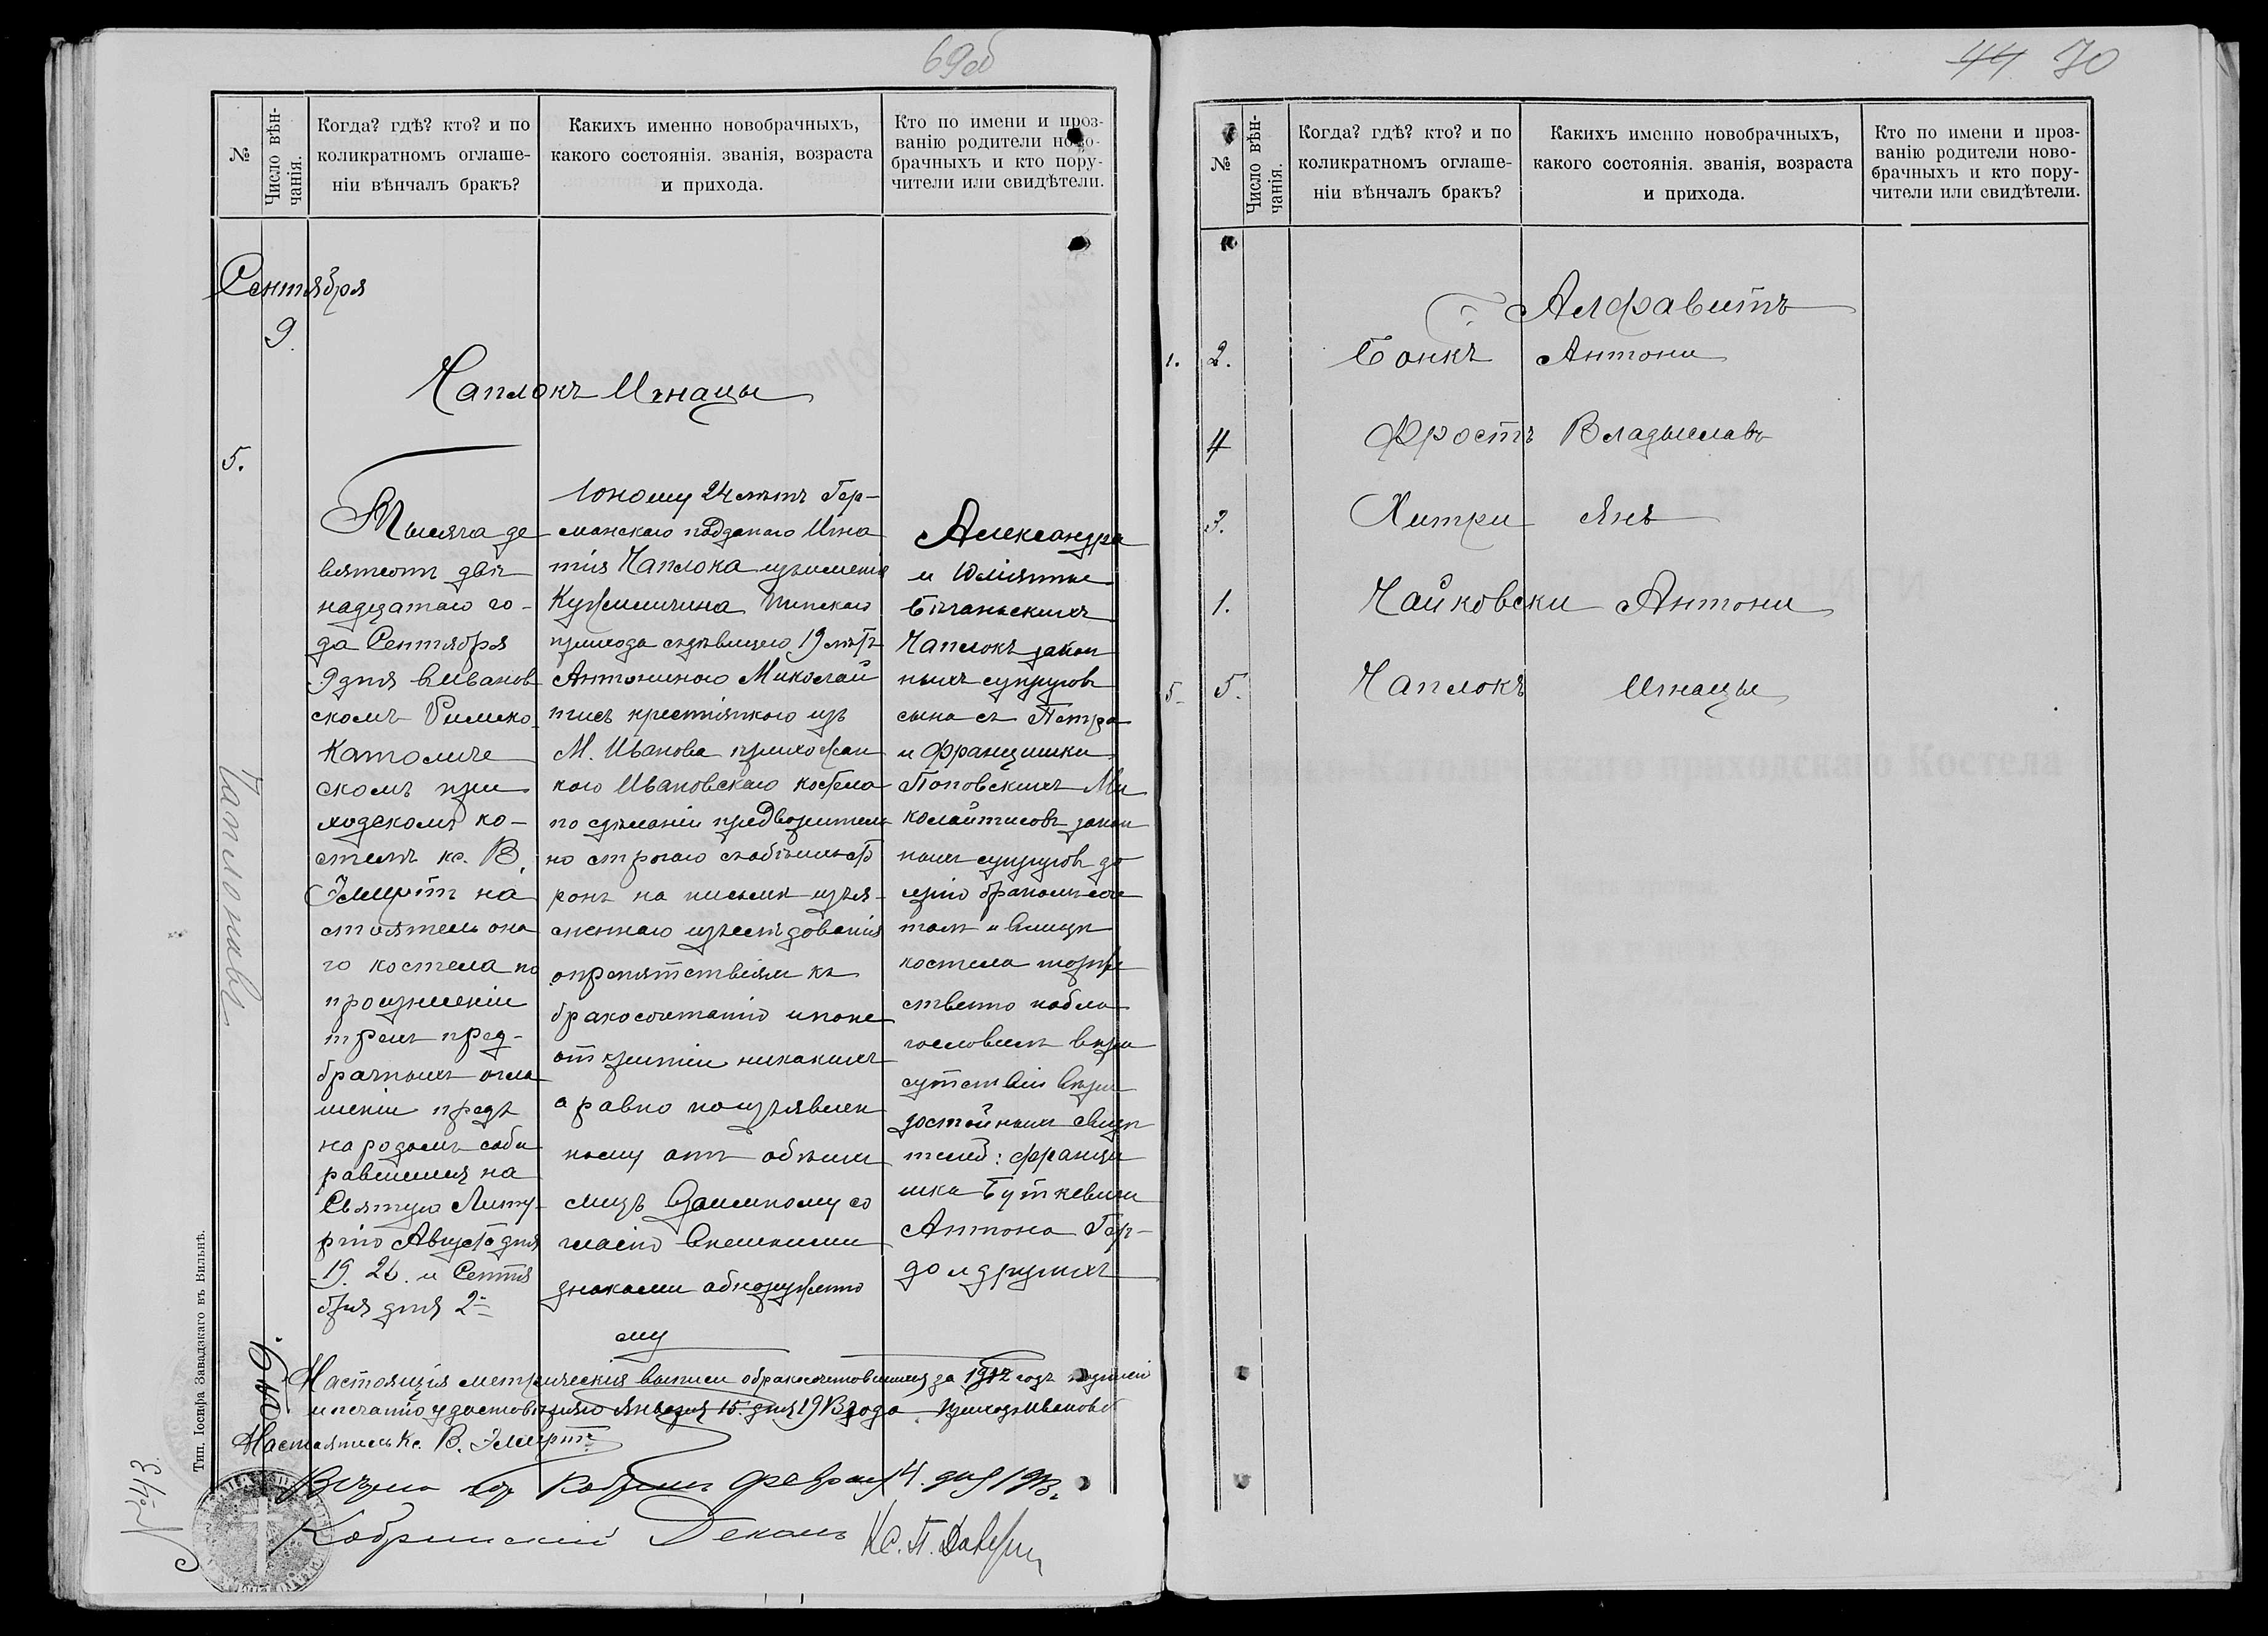 69об
№
Число вѣн-
чанія.
Когда? гдѣ? кто? и по
коликратномъ оглаше-
ніи вѣнчалъ бракъ?
Какихъ именно новобрачныхъ,
какого состоянія. званія, возраста
и прихода.
Кто по имени и проз-
ванію родители ново-
брачныхъ и кто пору-
чители или свидѣтели.
Сентября
9
Чаплокъ Игнацы
5.
Тысяча де
вятсотъ двѣ
надцатаго го-
да Сентября
9 дня в Иванов
скомъ Римско
Католиче
скомъ при
ходскомъ ко-
стелѣ кс. В.
на
стоятель она
го костела по
произнесеніи
трехъ пред-
брачныхъ огла
шеніи предъ
народомъ соби
равшимся на
Святую Литу-
ргію Августа дня
19. 26. и Сентя
бря дня 2-
Юношу 24 лѣтъ Гер-
манскаго подданаго Игна
тія Чаплока изъ имѣнія
Пинскаго
прихода съ дѣвицею 19 лѣтъ
Антониною Миколай
тисъ крестянкою изъ
М. Иванова прихожан
кою Ивановскаго костела
по сдѣланіи предворитель
но строгаго с обѣихъ сто
ронъ на письмѣ изъя-
сненнаго изслѣдованія
о препятствіям къ
бракосочетанію и по не
открытіи никакихъ
а равно по изъявлен
ному отъ обоихъ
лицъ взаимному со
гласію внешними
знаками обнаруженно
му
Александра
и Юліянны
Чаплокъ закон
ныхъ супругов
сына съ Петра
и Францишки
Поповскихъ Ми
колайтисовъ закон
ныхъ супругов до
черію бракомъ соче
талъ и в лицѣ
костела торже
ственно побла
гословилъ в при
сутствіи вѣро
достойныхъ свидѣ
телей: Франци
шка Буткевича
Антона Гер-
до и другихъ
Чаплоковы
Настоящія метрическія выписи о бракосочетовшихся за 1912 годъ подписью
и печатію удостовѣряю Января 15. дня 1913 года.
Настоятель Кс. В.
Вѣрно Февраля 14. дня 1913 г.
Кобринскій Деканъ Кс. П.
Тип. Іосифа Завадзкаго въ Вильнѣ.
44 70
№
Число вѣн-
чанія.
Когда? гдѣ? кто? и по
коликратномъ оглаше-
ніи вѣнчалъ бракъ?
Какихъ именно новобрачныхъ,
какого состоянія. званія, возраста
и прихода.
Кто по имени и проз-
ванію родители ново-
брачныхъ и кто пору-
чители или свидѣтели.
Алфавитъ
1. 2. Бонкъ Антони
4 Фростъ Владыславъ
3. Хитри Янъ
1. Чайковски Антони
5. 5. Чаплокъ Игнацы